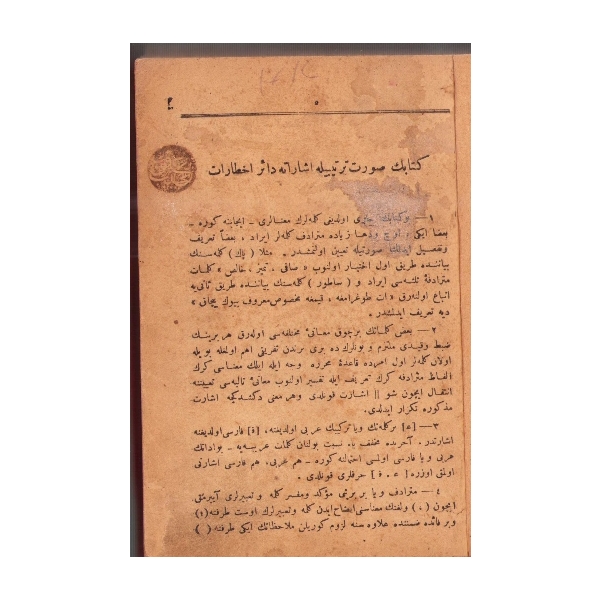 ٥
كتابك صورت ترتيبيله اشاراتنه دائر اخطارات
١ — بو كتابك اولديغى كله‌لرك معنالرى - ايجابنه كوره -
بعضاً ايكى زياده مترادف كله‌لر ايراد ، بعضاً تعريف
وتفصيل صورتيله تعيين اولنمشدر . مثلا ( پاك ) كله‌سنك
بياننده طريق اول اختيار اولنوب « صافى ، تميز ، خالص » كلمات
مترادفهٔ ايراد و ( ساطور ) كله‌سنك بياننده طريق ثانى‌يه
اتباع اولنه‌رق « ات طوغرامغه ، قيمغه مخصوص معروف بيوك بيچاق »
ديه تعريف ايدلشدر .
٢ — بعض كلماتك برچوق معانئ مختلفه‌سى اوله‌رق هر برينك
ضبط وقيدى ملتزم و بونلرك ده برى برندن تفريقى اهم اولمغله بويله
اولان كله‌لر اول امرده قاعدهٔ محرره وجه ايله ايلك معناسى كرك
الفاظ مترادفه كرك تعريف ايله تفسير اولنوب معانئ تاليه‌سى تعيينه
انتقال ايچون شو || اشارت قونلدى وهر معنى دكشدكجه اشارت
مذكوره تكرار ايدلدى .
٣ — [ع] بركله‌نك ويا تركيبك عربى اولديغنه ، [ف] فارسى اولديغنه
اشارتدر . آخرينده مخفف ياء نسبت بولنان كلمات عربيه‌يه - بواداتك
عربى ويا فارسى اولسى احتمالنه كوره - هم عربى ، هم فارسى اشارتى
اولمق اوزره [ ع . ف ] حرفلرى قونلدى .
٤ — مترادف ويا بربرينى مؤكد ومفسر كله و تعبيرلرى آييرمق
ايچون ( ، ) ولغتك معناسنى ايضاح ايدن كله وتعبيرلرك اوست طرفنه (:)
وبر فائده ضمننده علاوه سنه لزوم كوريلن ملاحظاتك ايكى طرفنه ( )